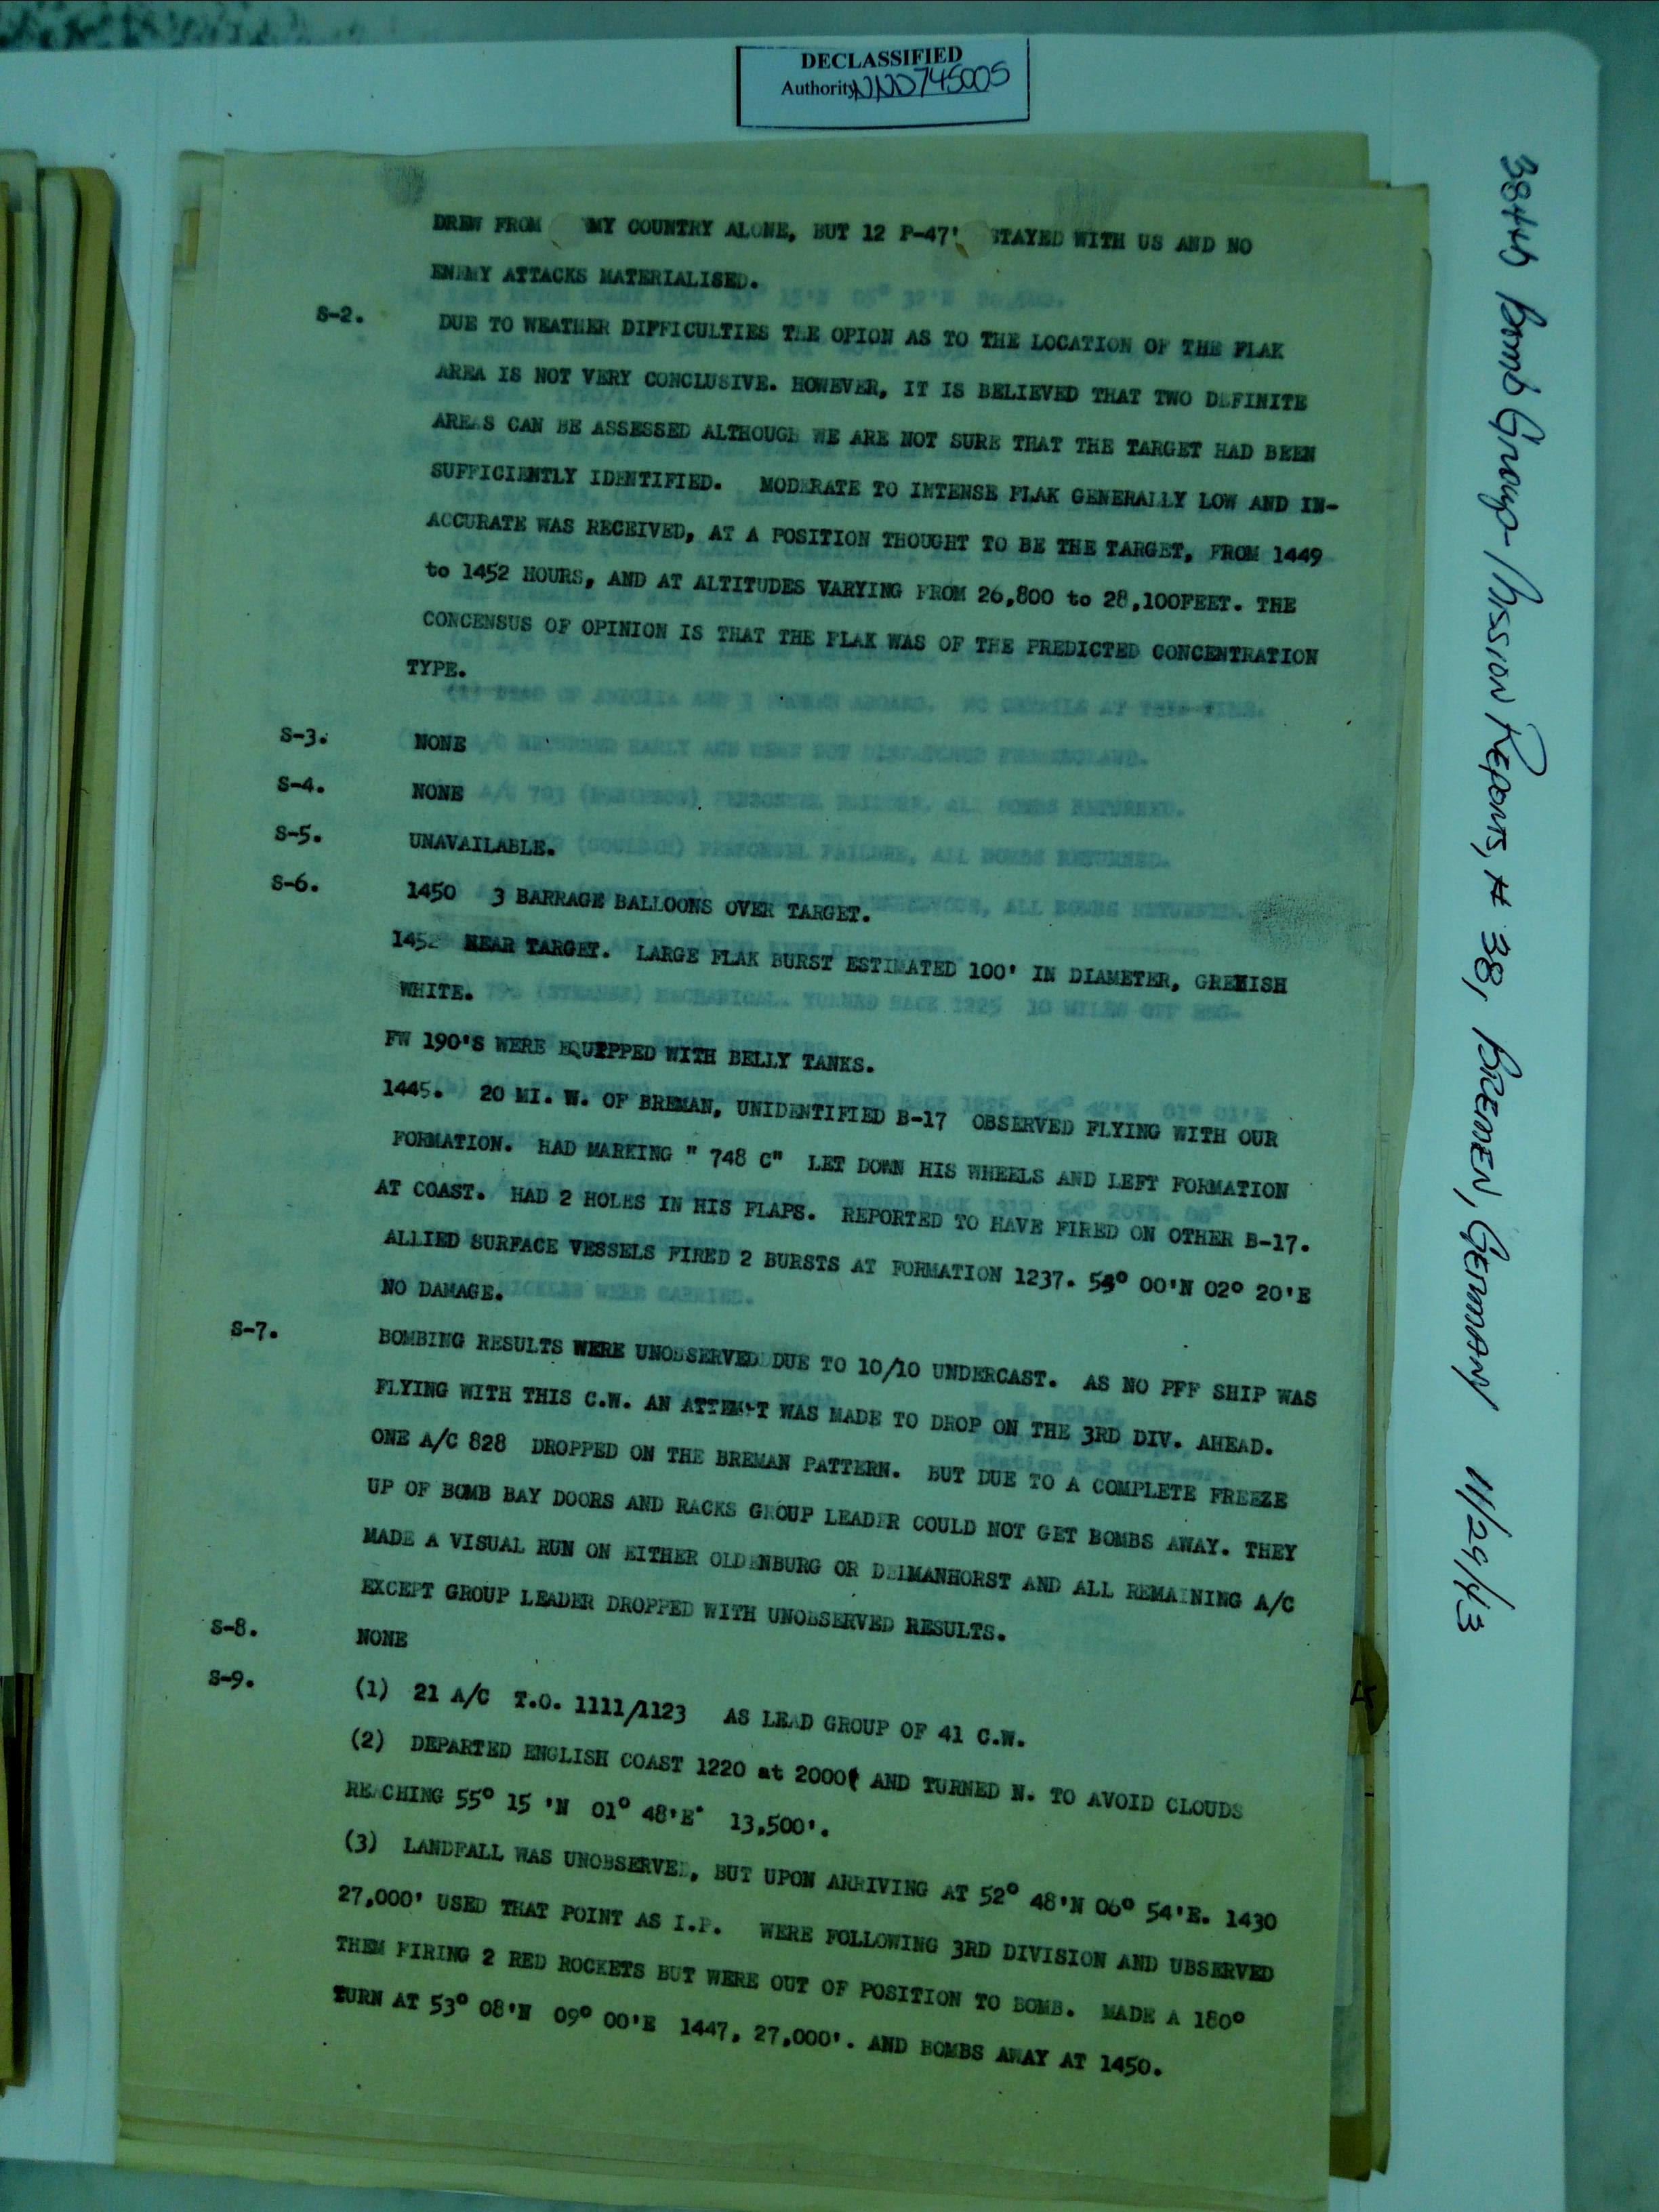 DECLASSIFIED
Authority NND745005
DREW FROM MY COUNTRY ALONE, BUT 12 P-47' STAYED WITH US AND NO
ENEMY ATTACKS MATERIALISED.
S-2. DUE TO WEATHER DIFFICULTIES THE OPION AS TO THE LOCATION OF THE FLAK
AREA IS NOT VERY CONCLUSIVE. HOWEVER, IT IS BELIEVED THAT TWO DEFINITE
AREAS CAN BE ASSESSED ALTHOUGH WE ARE NOT SURE THAT THE TARGET HAD BEEN
SUFFICIENTLY IDENTIFIED. MODERATE TO INTENSE FLAK GENERALLY LOW AND IN-
ACCURATE WAS RECEIVED, AT A POSITION THOUGHT TO BE THE TARGET, FROM 1449
to 1452 HOURS, AND AT ALTITUDES VARYING FROM 26,800 to 28,100FEET. THE
CONCENSUS OF OPINION IS THAT THE FLAK WAS OF THE PREDICTED CONCENTRATION
TYPE.
S-3. NONE
S-4. NONE
S-5. UNAVAILABLE.
S-6. 1450 3 BARRAGE BALLOONS OVER TARGET.
1452 NEAR TARGET. LARGE FLAK BURST ESTIMATED 100' IN DIAMETER, GREENISH
WHITE.
FW 190'S WERE EQUIPPPED WITH BELLY TANKS.
1445. 20 MI. W. OF BREMAN, UNIDENTIFIED B-17 OBSERVED FLYING WITH OUR
FORMATION. HAD MARKING " 748 C" LET DOWN HIS WHEELS AND LEFT FORMATION
AT COAST. HAD 2 HOLES IN HIS FLAPS. REPORTED TO HAVE FIRED ON OTHER B-17.
ALLIED SURFACE VESSELS FIRED 2 BURSTS AT FORMATION 1237. 54° 00'N 02° 20'E
NO DAMAGE.
S-7. BOMBING RESULTS WERE UNOBSERVED DUE TO 10/10 UNDERCAST. AS NO PFF SHIP WAS
FLYING WITH THIS C.W. AN ATTEMPT WAS MADE TO DROP ON THE 3RD DIV. AHEAD.
ONE A/C 828 DROPPED ON THE BREMAN PATTERN. BUT DUE TO A COMPLETE FREEZE
UP OF BOMB BAY DOORS AND RACKS GROUP LEADER COULD NOT GET BOMBS AWAY. THEY
MADE A VISUAL RUN ON EITHER OLDENBURG OR DELMANHORST AND ALL REMAINING A/C
EXCEPT GROUP LEADER DROPPED WITH UNOBSERVED RESULTS.
S-8. NONE
S-9. (1) 21 A/C T.O. 1111/1123 AS LEAD GROUP OF 41 C.W.
(2) DEPARTED ENGLISH COAST 1220 at 2000' AND TURNED N. TO AVOID CLOUDS
REACHING 55° 15 'N 01° 48'E 13,500'.
(3) LANDFALL WAS UNOBSERVED, BUT UPON ARRIVING AT 52° 48'N 06° 54'E. 1430
27,000' USED THAT POINT AS I.P. WERE FOLLOWING 3RD DIVISION AND UBSERVED
THEM FIRING 2 RED ROCKETS BUT WERE OUT OF POSITION TO BOMB. MADE A 180°
TURN AT 53° 08'N 09° 00'E 1447, 27,000'. AND BOMBS AWAY AT 1450.
384th Bomb Group-Mission Reports, # 38, BREMEN, GERMANY 11/29/43